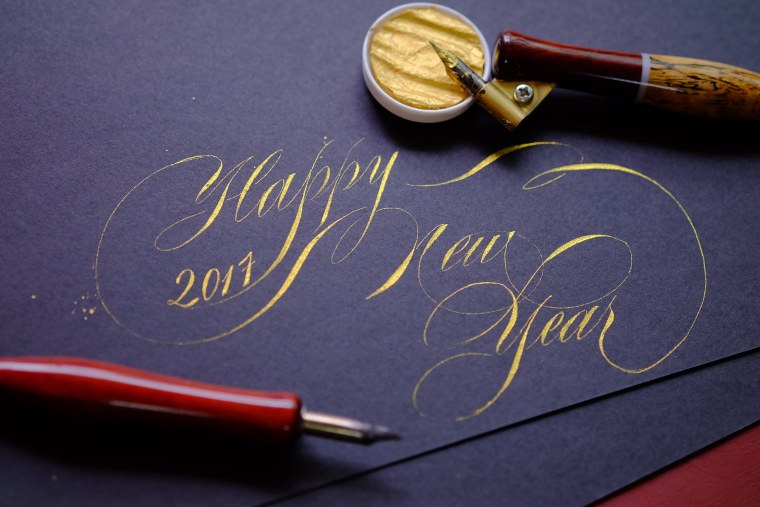 Happy
2017
New
Year